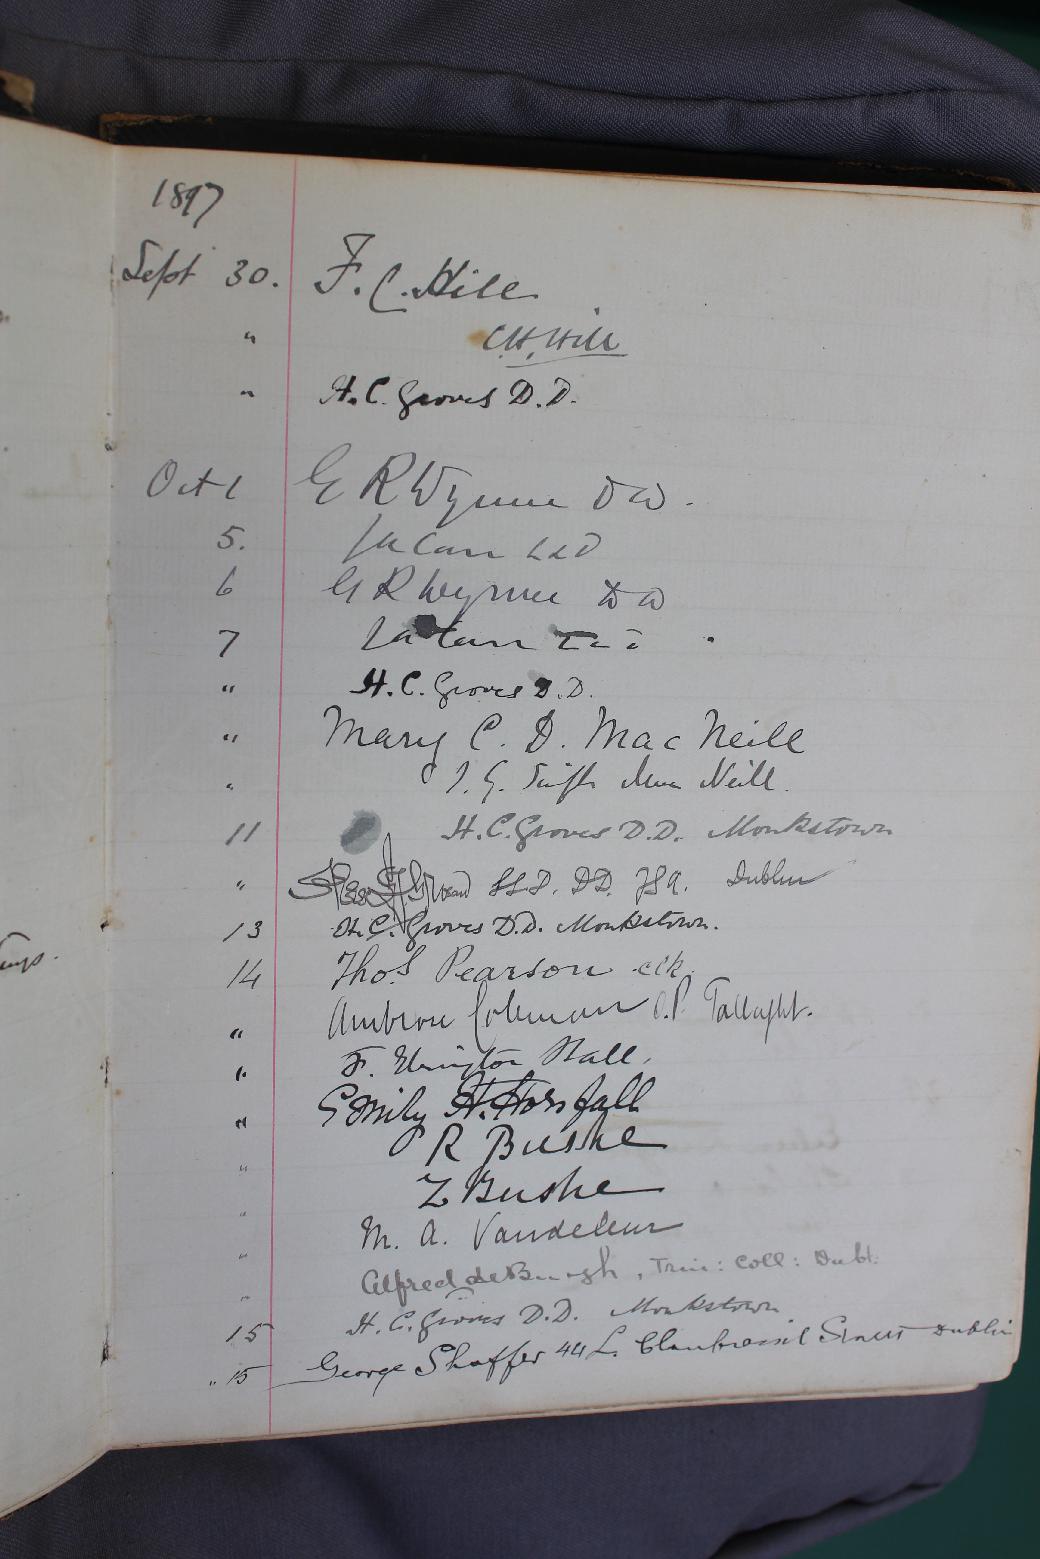 1897
Sept 30. F. C. Hill
" C.H. Hill
" H. C. Groves D.D.
Oct 1 G R Wynne DD.
5.
6 G R Wynne DD
7
" H. C. Groves D.D.
" Mary C. D. MacNeill
" J. G. Swift Mac Neill.
11 H. C. Groves D.D. Monkstown
" LL.D. DD. Dublin
13 H. C. Groves D.D. Monkstown.
14 Thos Pearson clk.
" Ambrose Coleman O.P. Tallaght.
" F. Elrington Ball.
" Emily H. Horsfall
" R Bushe
" Z Bushe
" M. A. Vandeleur
" Alfred de Burgh, Trin: Coll: Dubl:
15 H. C. Groves D.D. Monkstown
" 15 George Shaffer 44 L. Clanbrassil Street Dublin